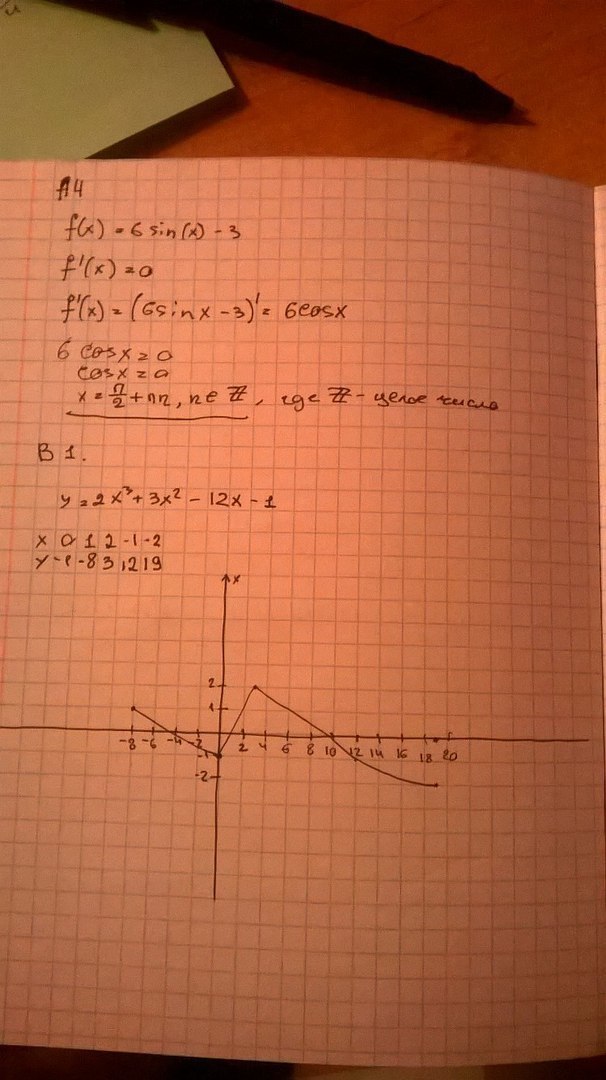 A4
f(x) = 6 sin(x) - 3
f'(x) = 0
f'(x) = (6sinx - 3)' = 6cosx
6 cosx = 0
cosx = 0
x = π/2 + πn, n ∈ ℤ, где ℤ - целое число
В 1.
y = 2x³ + 3x² - 12x - 1
x 0 1 2 -1 -2
y -1 -8 3 12 19
x
2
1
-8 -6 -4 -2 2 4 6 8 10 12 14 16 18 20
-1
-2